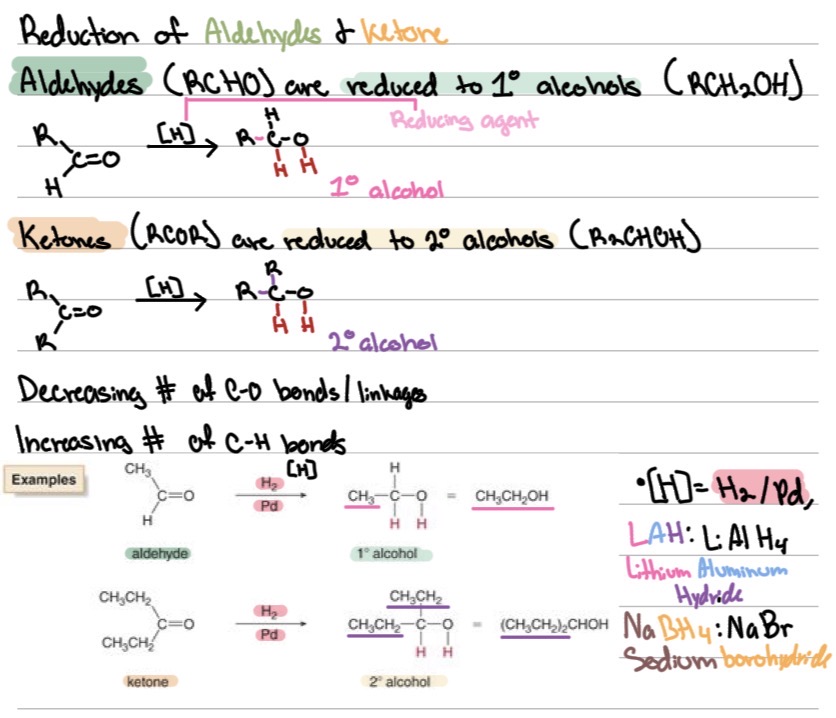 Reduction of Aldehydes & Ketone
Aldehydes (RCHO) are reduced to 1° alcohols (RCH2OH)
Reducing agent
R
H
C=O
[H]
H
R-C-O
H H
1° alcohol
Ketones (RCOR) are reduced to 2° alcohols (R2CHOH)
R
R
C=O
[H]
R
R-C-O
H H
2° alcohol
Decreasing # of C-O bonds/linkages
Increasing # of C-H bonds
Examples
CH3
C=O
H
aldehyde
[H]
H2
Pd
H
CH3-C-O
H H
= CH3CH2OH
1° alcohol
CH3CH2
C=O
CH3CH2
ketone
H2
Pd
CH3CH2
CH3CH2-C-O
H H
= (CH3CH2)2CHOH
2° alcohol
•[H]= H2/Pd,
LAH: LiAlH4
Lithium Aluminum
Hydride
NaBH4: NaBr
Sodium borohydride